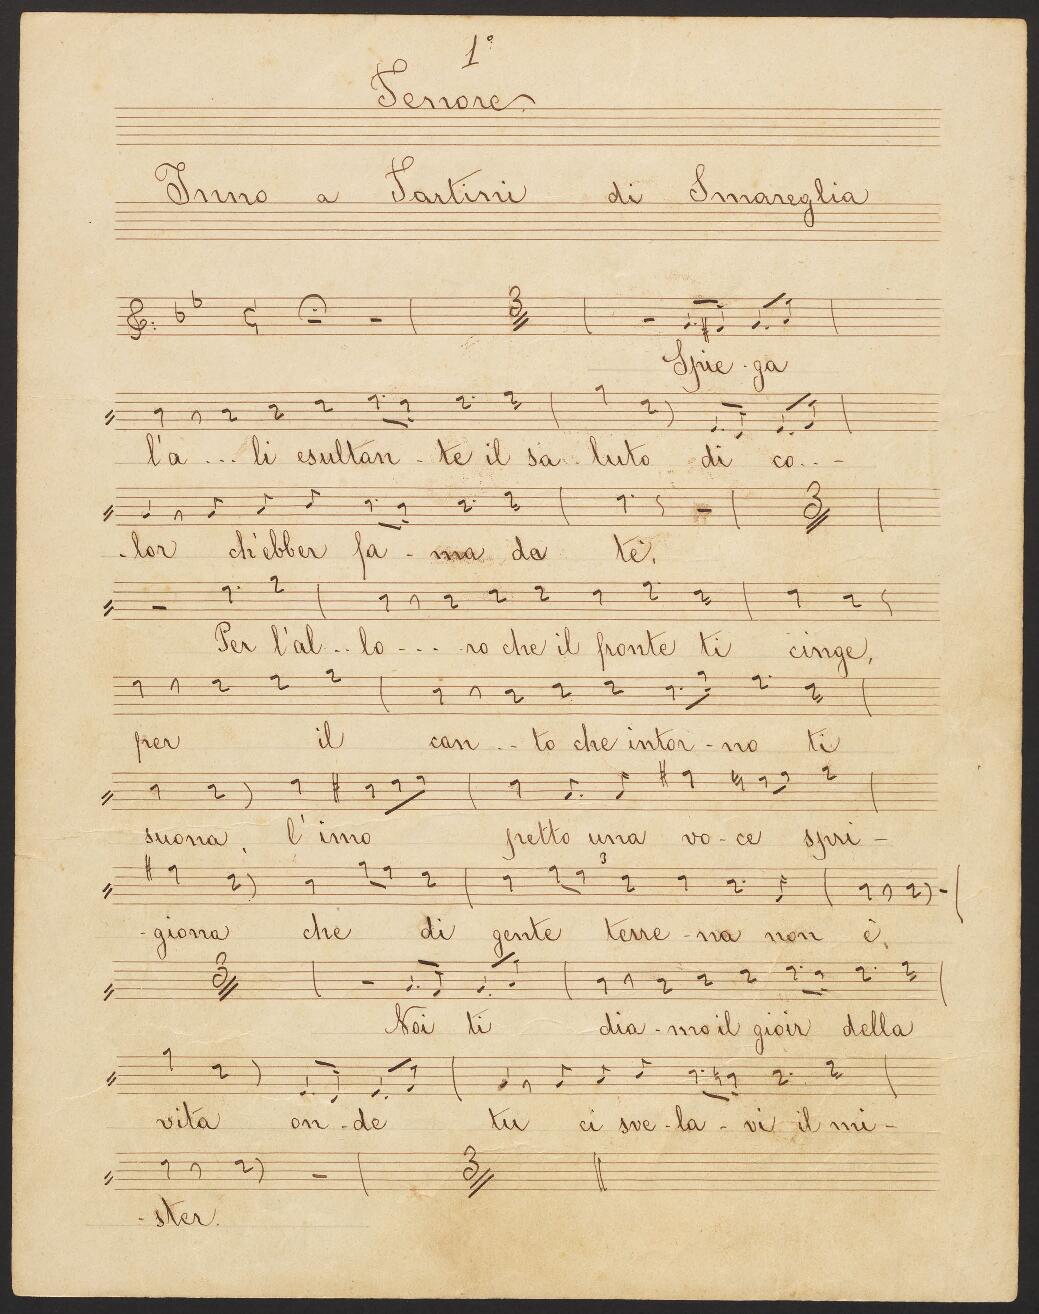 1°
Tenore
Inno a Tartini di Smareglia
3
Spie - ga
l'a ... li esultan - te il sa - luto di co.. -
- lor ch'ebber fa - ma da te.
3
Per l'al .. lo - - - ro che il fronte ti cinge,
per il can .. to che intor - no ti
suona, l'imo petto una vo - ce spri -
3
- giona che di gente terre - na non è,
3
Noi ti dia - mo il gioir della
vita on - de tu ci sve - la - vi il mi -
3
- ster.